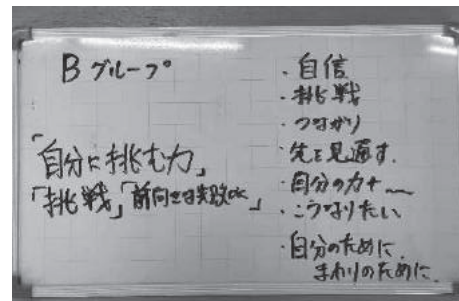 Bグループ
「自分に挑む力」
「挑戦」「前向きな失敗OK」
・自信
・挑戦
・つながり
・先を見通す.
・自分の力+〜
・こうなりたい
・自分のために.
まわりのために.